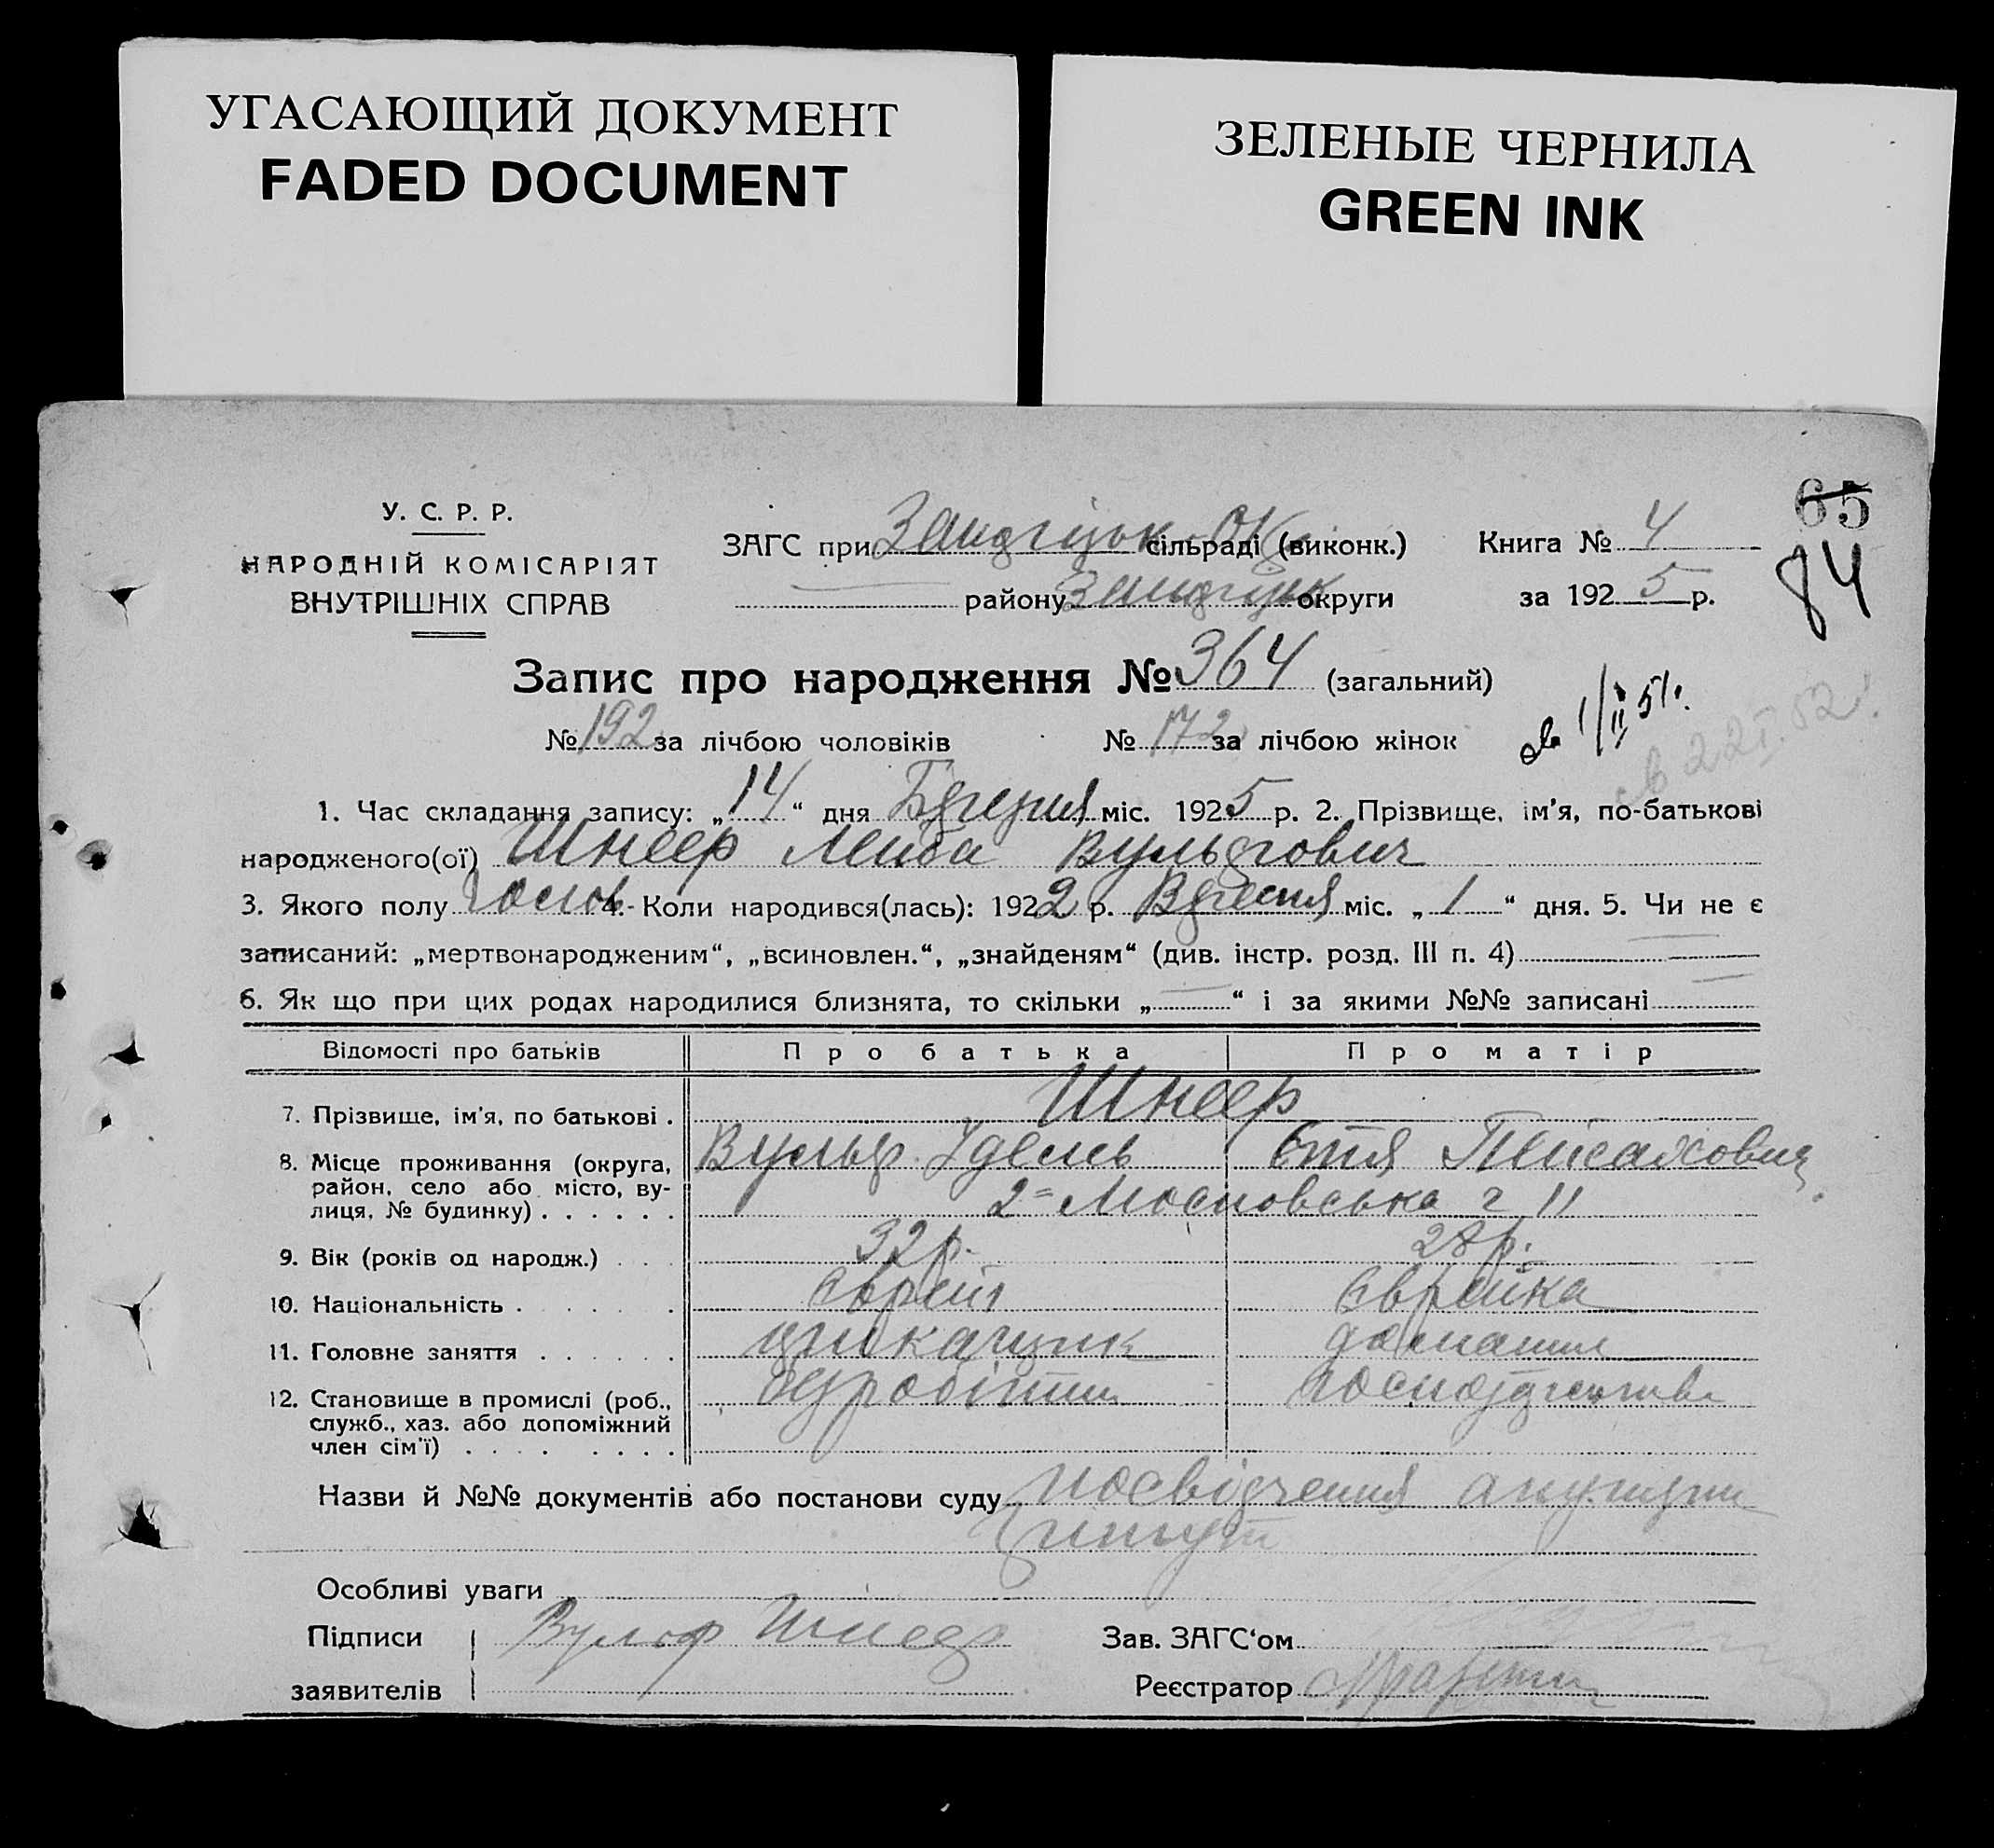 УГАСАЮЩИЙ ДОКУМЕНТ
FADED DOCUMENT
ЗЕЛЕНЫЕ ЧЕРНИЛА
GREEN INK
65
84
У. С. Р. Р.
НАРОДНІЙ КОМІСАРІЯТ
ВНУТРІШНІХ СПРАВ
ЗАГС при сільраді (виконк.)
району округи
Книга № 4
за 1925 р.
Запис про народження № 364 (загальний)
№ 192 за лічбою чоловіків № 172 за лічбою жінок
1. Час складання запису: „14“ дня міс. 1925 р. 2. Прізвище, ім'я, по-батькові
народженого(ої) Шнеер Лейба Вульфович
3. Якого полу 4. Коли народився(лась): 1922 р. Вересня міс. „1“ дня. 5. Чи не є
записаний: „мертвонародженим“, „всиновлен.“, „знайденям“ (див. інстр. розд. III п. 4)
6. Як що при цих родах народилися близнята, то скільки „ “ і за якими №№ записані
Відомості про батьків Про батька Про матір
7. Прізвище, ім'я, по батькові . Шнеер
Вульф Удель Етя Пейсахович
8. Місце проживання (округа,
район, село або місто, ву-
лиця, № будинку) . . . . . . 2 Московська 11
9. Вік (років од народж.) . . . 32 р. 28 р.
10. Національність . . . . . . Єврей Єврейка
11. Головне заняття . . . . . . домашнє
12. Становище в промислі (роб.,
служб., хаз. або допоміжний
член сім'ї) . . . . . . . .
Назви й №№ документів або постанови суду посвідчення
Особливі уваги
Підписи
заявителів
Вульф Шнеер
Зав. ЗАГС‘ом
Реєстратор